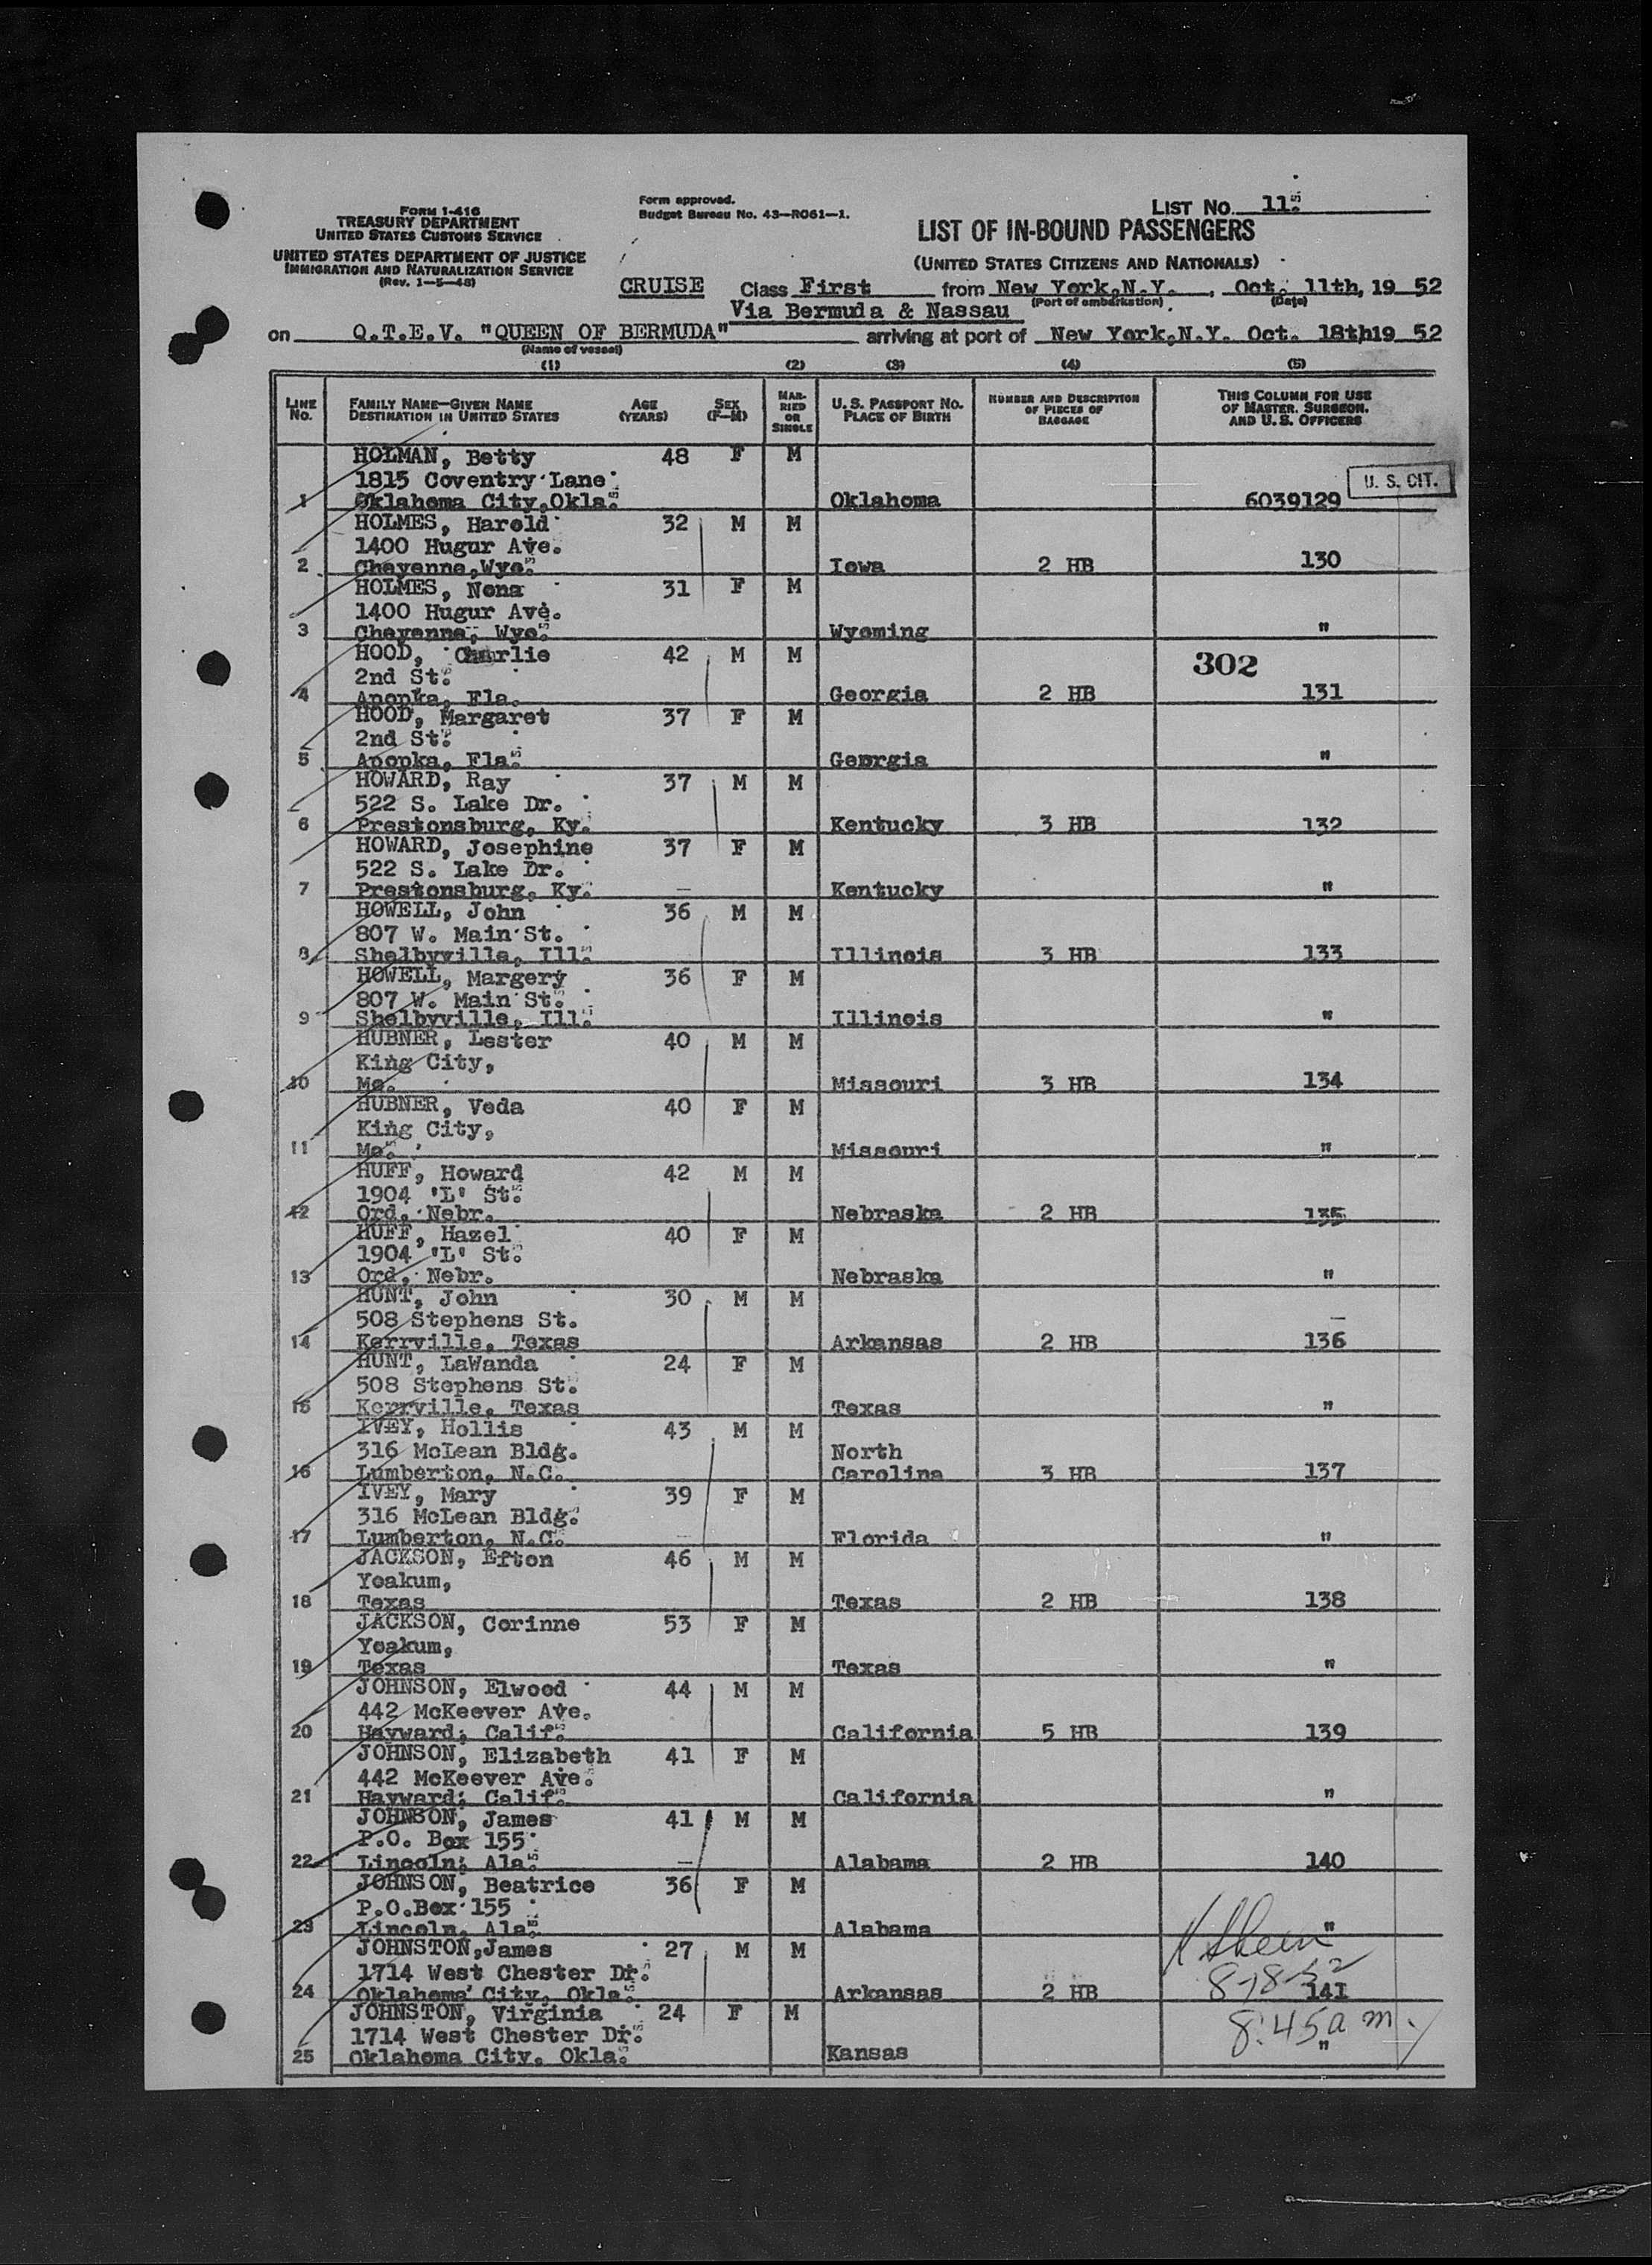 FORM I-416
TREASURY DEPARTMENT
UNITED STATES CUSTOMS SERVICE
UNITED STATES DEPARTMENT OF JUSTICE
IMMIGRATION AND NATURALIZATION SERVICE
(Rev. 1-5-48)
Form approved.
Budget Bureau No. 43-R061-1.
LIST NO. 11.
LIST OF IN-BOUND PASSENGERS
(UNITED STATES CITIZENS AND NATIONALS)
CRUISE Class First from New York,N.Y. , Oct. 11th, 19 52
(Port of embarkation) (Date)
Via Bermuda & Nassau
on Q.T.E.V. "QUEEN OF BERMUDA" arriving at port of New York,N.Y. Oct. 18th 19 52
(Name of vessel)
(1) (2) (3) (4) (5)
LINE NO. FAMILY NAME—GIVEN NAME DESTINATION IN UNITED STATES AGE (YEARS) SEX (F—M) MARRIED OR SINGLE U. S. PASSPORT NO. PLACE OF BIRTH NUMBER AND DESCRIPTION OF PIECES OF BAGGAGE THIS COLUMN FOR USE OF MASTER, SURGEON, AND U. S. OFFICERS
HOLMAN, Betty 48 F M
1815 Coventry Lane U. S. CIT.
1 Oklahoma City,Okla. Oklahoma 6039129
HOLMES, Harold 32 M M
1400 Hugur Ave.
2 Cheyenne,Wyo. Iowa 2 HB 130
HOLMES, Nona 31 F M
1400 Hugur Ave.
3 Cheyenne, Wyo. Wyoming "
HOOD, Charlie 42 M M 302
2nd St.
4 Anopka, Fla. Georgia 2 HB 131
HOOD, Margaret 37 F M
2nd St.
5 Apopka, Fla. Georgia "
HOWARD, Ray 37 M M
522 S. Lake Dr.
6 Prestonsburg, Ky. Kentucky 3 HB 132
HOWARD, Josephine 37 F M
522 S. Lake Dr.
7 Prestonsburg, Ky. Kentucky "
HOWELL, John 36 M M
807 W. Main St.
8 Shelbyville, Ill. Illinois 3 HB 133
HOWELL, Margery 36 F M
807 W. Main St.
9 Shelbyville, Ill. Illinois "
HUBNER, Lester 40 M M
King City,
10 Mo. Missouri 3 HB 134
HUBNER, Veda 40 F M
King City,
11 Mo. Missouri "
HUFF, Howard 42 M M
1904 'L' St.
12 Ord, Nebr. Nebraska 2 HB 135
HUFF, Hazel 40 F M
1904 'L' St.
13 Ord, Nebr. Nebraska "
HUNT, John 30 M M
508 Stephens St.
14 Kerrville, Texas Arkansas 2 HB 136
HUNT, LaWanda 24 F M
508 Stephens St.
15 Kerrville, Texas Texas "
IVEY, Hollis 43 M M
316 McLean Bldg. North
16 Lumberton, N.C. Carolina 3 HB 137
IVEY, Mary 39 F M
316 McLean Bldg.
17 Lumberton, N.C. Florida "
JACKSON, Efton 46 M M
Yoakum,
18 Texas Texas 2 HB 138
JACKSON, Corinne 53 F M
Yoakum,
19 Texas Texas "
JOHNSON, Elwood 44 M M
442 McKeever Ave.
20 Hayward, Calif. California 5 HB 139
JOHNSON, Elizabeth 41 F M
442 McKeever Ave.
21 Hayward, Calif. California "
JOHNSON, James 41 M M
P.O. Box 155
22 Lincoln, Ala. Alabama 2 HB 140
JOHNSON, Beatrice 36 F M
P.O.Box 155
23 Lincoln, Ala. Alabama "
JOHNSTON,James 27 M M
1714 West Chester Dr.
24 Oklahoma City, Okla. Arkansas 2 HB 141
JOHNSTON, Virginia 24 F M
1714 West Chester Dr. 8:45 a m.
25 Oklahoma City, Okla. Kansas "